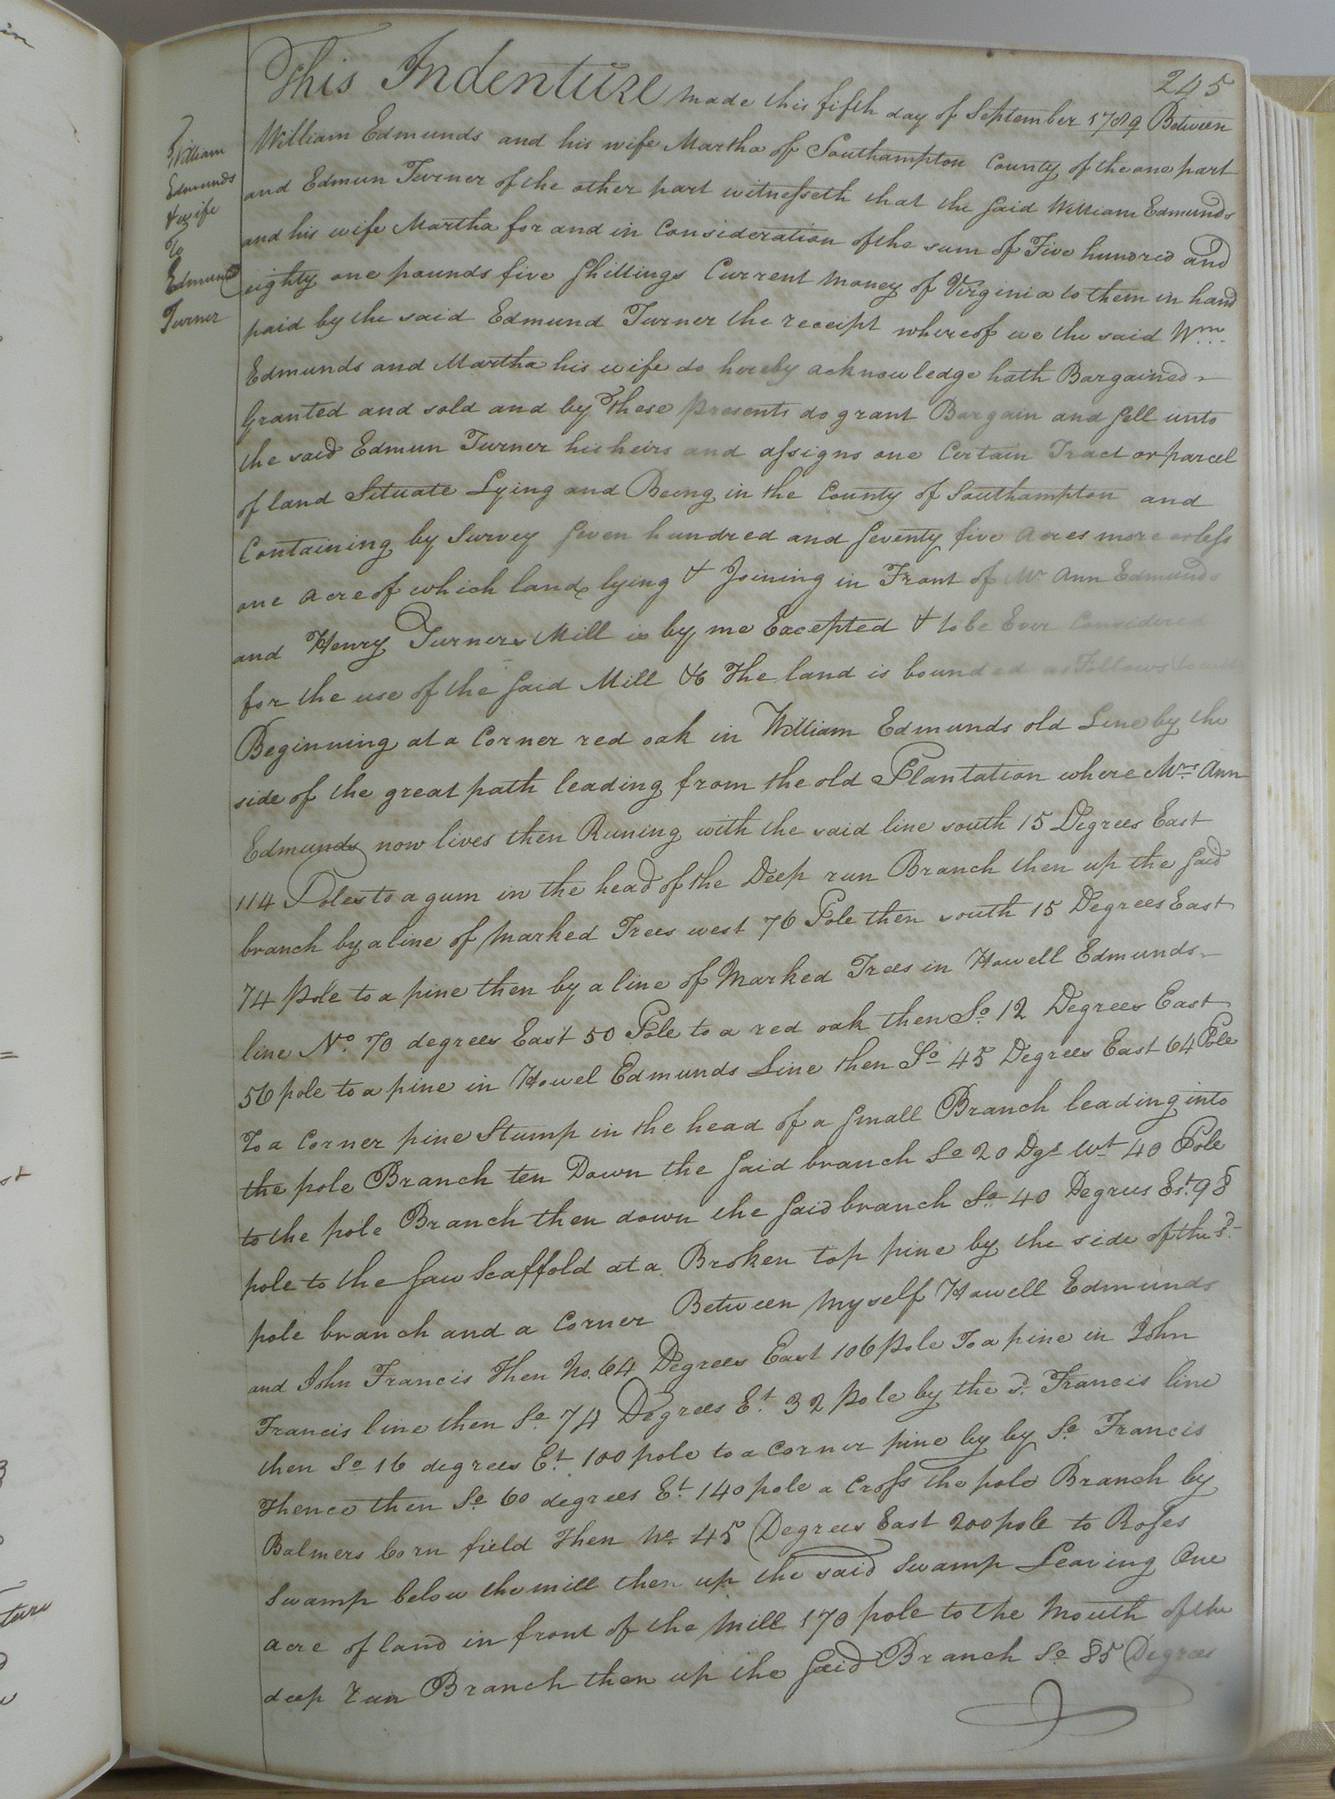 245
This Indenture made this fifth day of September 1789 Between
William Edmunds and his wife Martha of Southampton County of the one part
and Edmun Turner of the other part witnesseth that the said William Edmunds
and his wife Martha for and in Consideration of the sum of Five hundred and
eighty one pounds five shillings Current money of Virginia to them in hand
paid by the said Edmund Turner the receipt whereof we the said Wm
Edmunds and Martha his wife do hereby acknowledge hath Bargained
Granted and sold and by These presents do grant Bargain and sell unto
the said Edmun Turner his heirs and assigns one Certain Tract or parcel
of land Situate Lying and Being in the County of Southampton and
Containing by Survey Seven hundred and Seventy five acres more or less
one acre of which land lying & Joining in Front of Mr Ann Edmunds
and Henry Turners Mill is by me Excepted & to be Ever Considered
for the use of the said Mill &c The land is bounded as Follows
Beginning at a Corner red oak in William Edmunds old Line by the
side of the great path leading from the old Plantation where Mrs Ann
Edmunds now lives then Runing with the said line south 15 Degrees East
114 Poles to a gum in the head of the Deep run Branch then up the said
branch by a line of marked Trees west 76 Pole then south 15 Degrees East
74 pole to a pine then by a line of Marked Trees in Howell Edmunds
line No. 70 degrees East 50 Pole to a red oak then So 12 Degrees East
56 pole to a pine in Howel Edmunds Line then So 45 Degrees East 64 Pole
To a Corner pine Stump in the head of a small Branch leading into
the pole Branch ten Down the said branch So 20 Dgs Wt 40 Pole
to the pole Branch then down the said branch So 40 Degrees Est. 98
pole to the Saw Scaffold at a Broken top pine by the side of the sd
pole branch and a Corner Between myself Howell Edmunds
and John Francis Then No. 64 Degrees East 106 pole To a pine in John
Francis line then So 74 Degrees Et 32 pole by the sd. Francis line
then So 16 degrees Et. 100 pole to a Corner pine by by Sd Francis
Thence then So 60 degrees Et 140 pole a Cross the pole Branch by
Balmers Corn field Then No 45 Degrees East 200 pole to Roses
Swamp below the mill then up the said Swamp Leaving One
acre of land in front of the mill 170 pole to the Mouth of the
deep run Branch then up the said Branch So 85 Degrees
William
Edmunds
& wife
To
Edmund
Turner